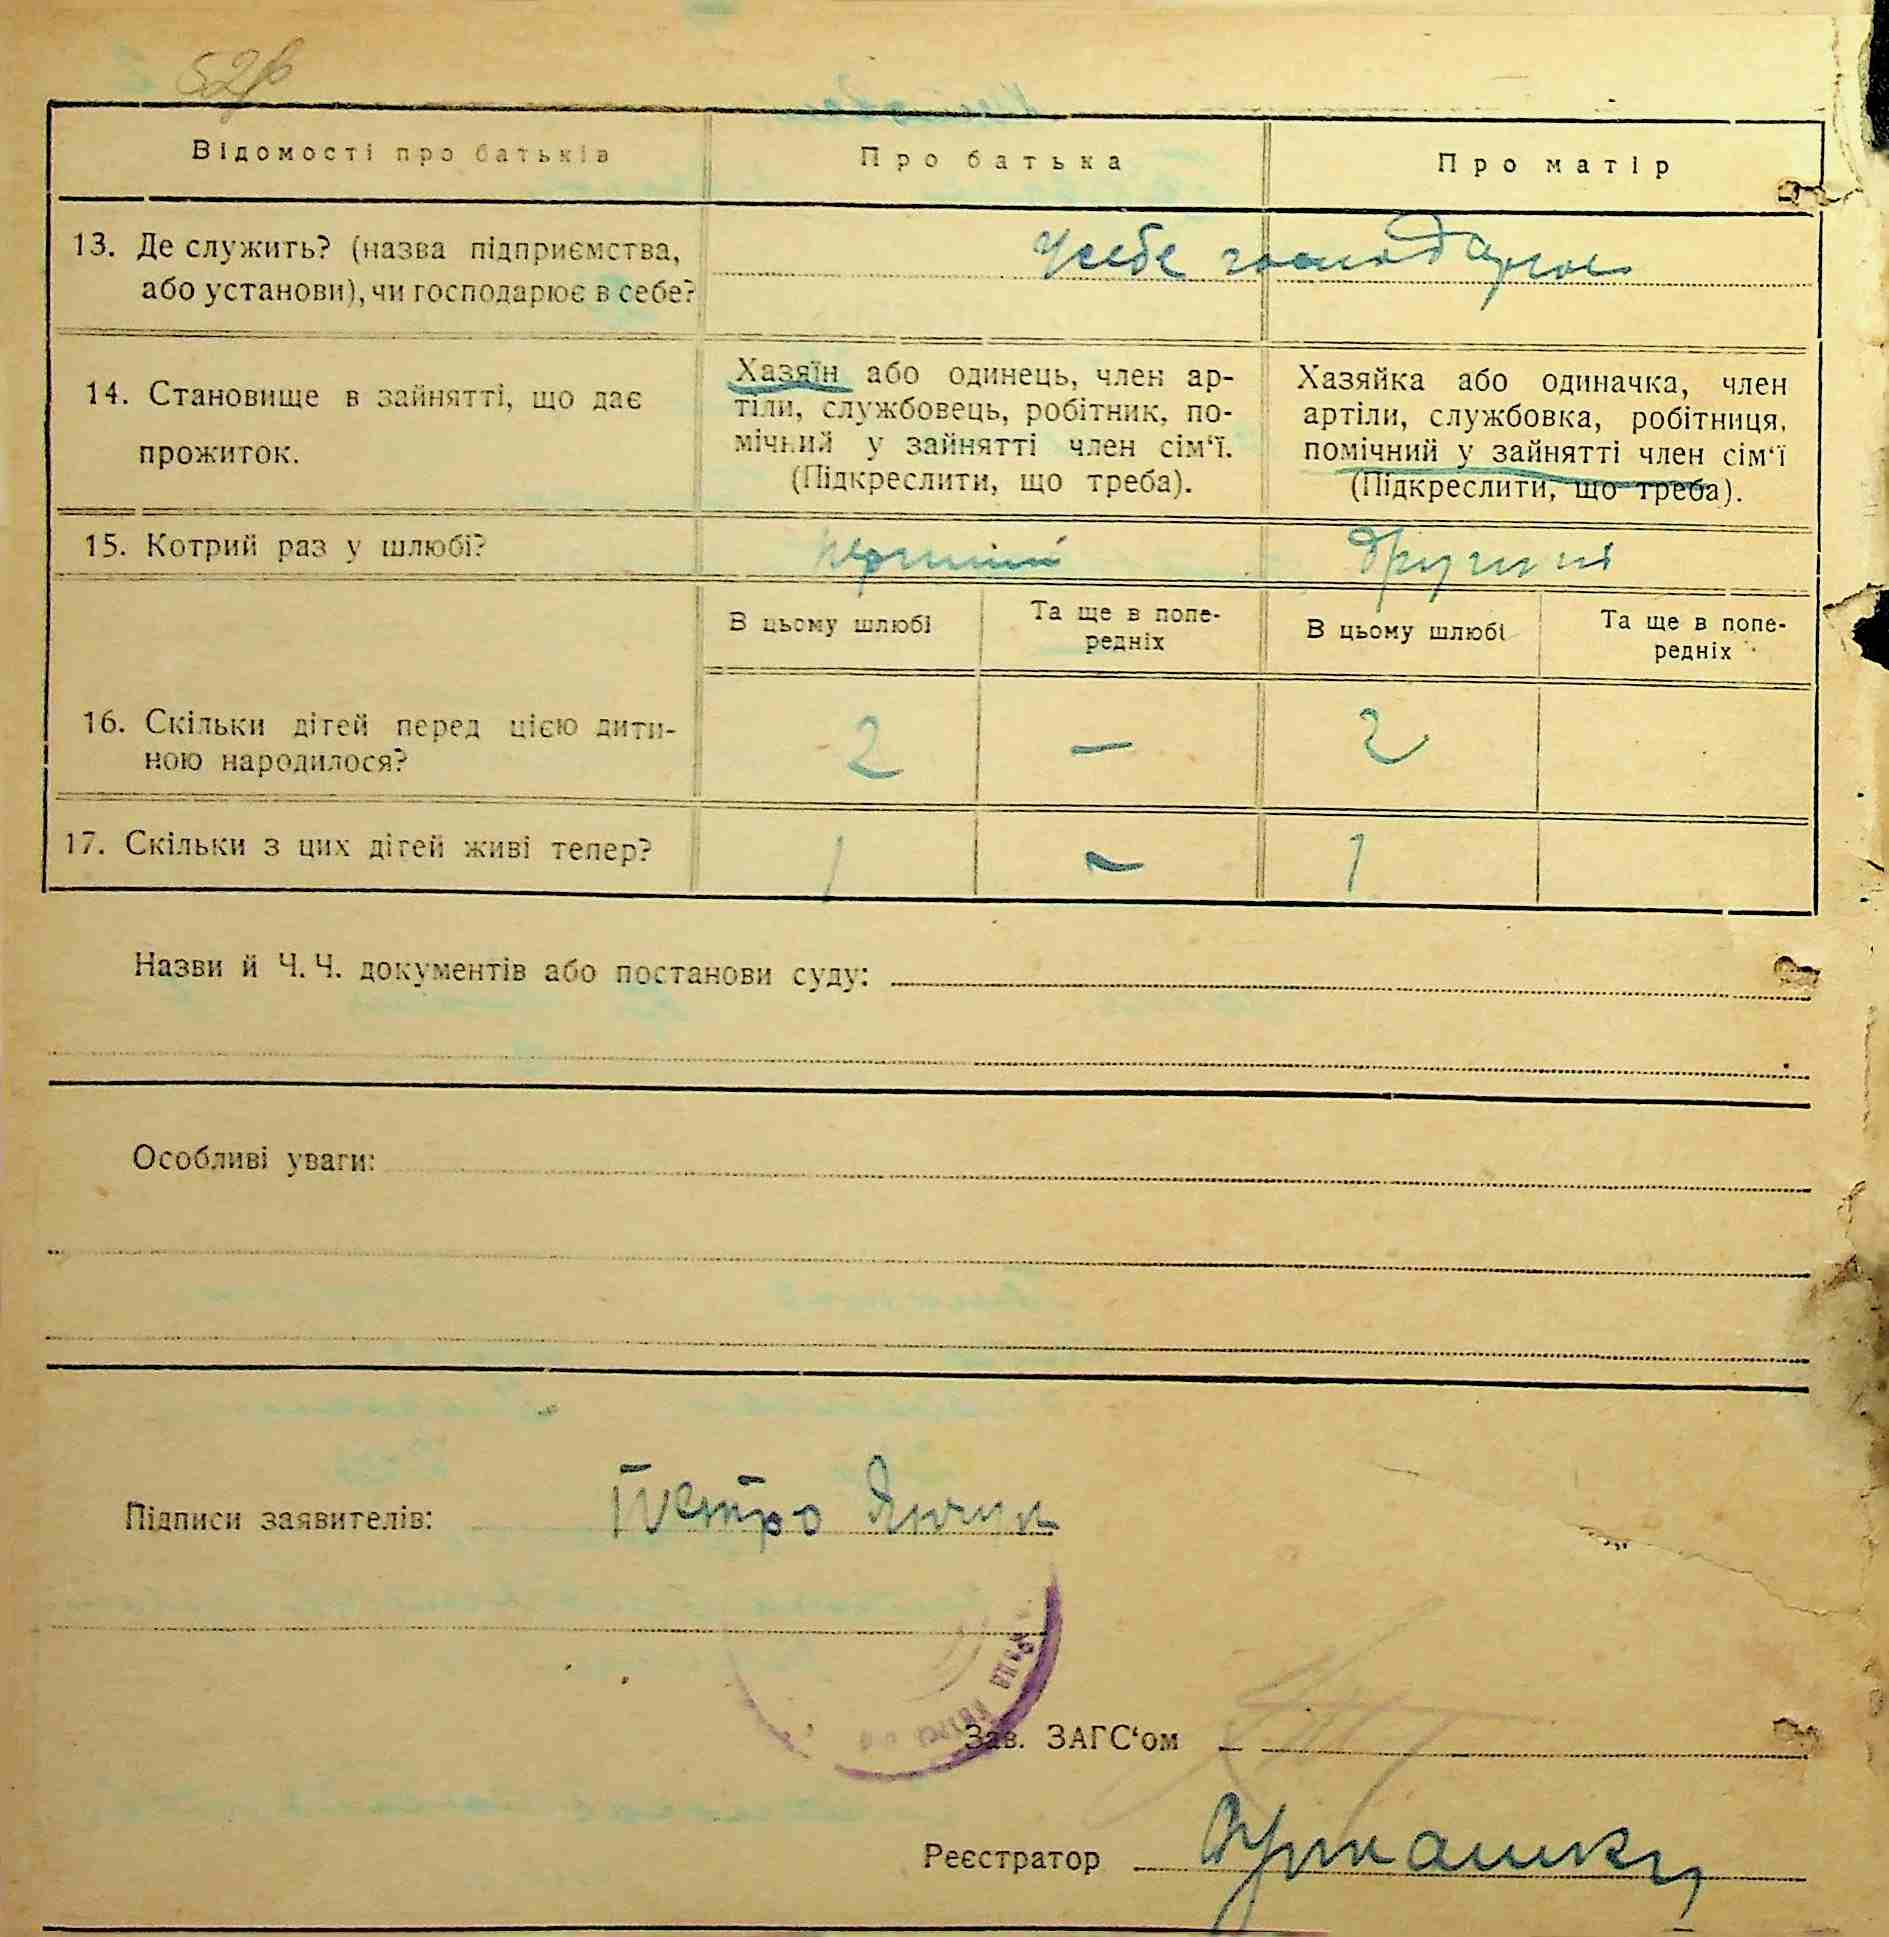 Відомості про батьків
Про батька
Про матір
13. Де служить? (назва підприємства,
або установи), чи господарює в себе?
у себе
14. Становище в зайнятті, що дає
прожиток.
Хазяїн або одинець, член ар-
тіли, службовець, робітник, по-
мічний у зайнятті член сім‘ї.
(Підкреслити, що треба).
Хазяйка або одиначка, член
артіли, службовка, робітниця,
помічний у зайнятті член сім‘ї
(Підкреслити, що треба).
15. Котрий раз у шлюбі?
В цьому шлюбі
Та ще в попе-
редніх
В цьому шлюбі
Та ще в попе-
редніх
16. Скільки дітей перед цією дити-
ною народилося?
2 — 2
17. Скільки з цих дітей живі тепер?
1 — 1
Назви й Ч. Ч. документів або постанови суду:
Особливі уваги:
Підписи заявителів: Петро Янчук
Зав. ЗАГС‘ом
Реєстратор